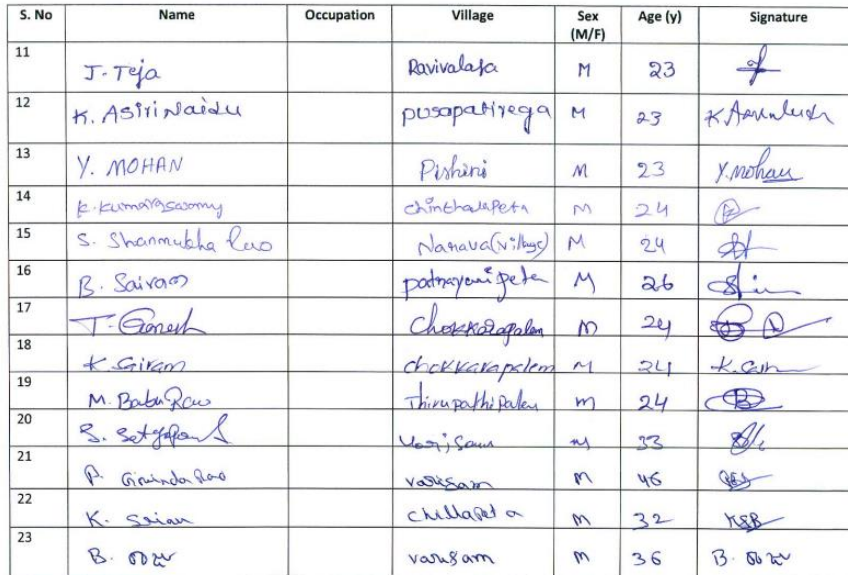 S. No Name Occupation Village Sex (M/F) Age (y) Signature
11 J. Teja Ravivalasa M 23
12 K. Asiri Naidu pusapatirega M 23
13 Y. MOHAN Pishini M 23 Y. mohan
14 K. Kumaraswamy chinthalapeta M 24
15 S. Shanmukha Rao Narava(village) M 24
16 B. Sairam M 26
17 T. Ganesh Chokkarapalem M 24
18 K. Sairam chokkarapalem M 24
19 M. Babu Rao Thirupathi Palem M 24 B
20 S. M 33
21 P. Govinda Rao varisam M 46
22 K. chillapeta M 32 KSB
23 B. varisam M 36 B.